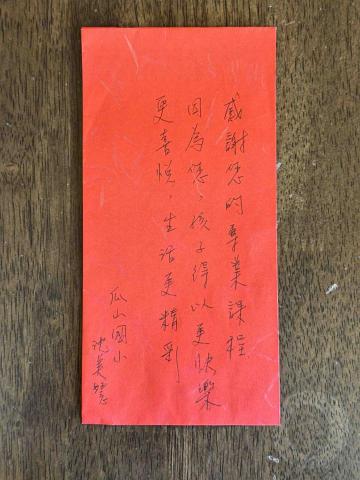 感謝您的專業課程
因為您，孩子得以更快樂
更喜悅，生活更精彩
瓜山國小
沈美慧